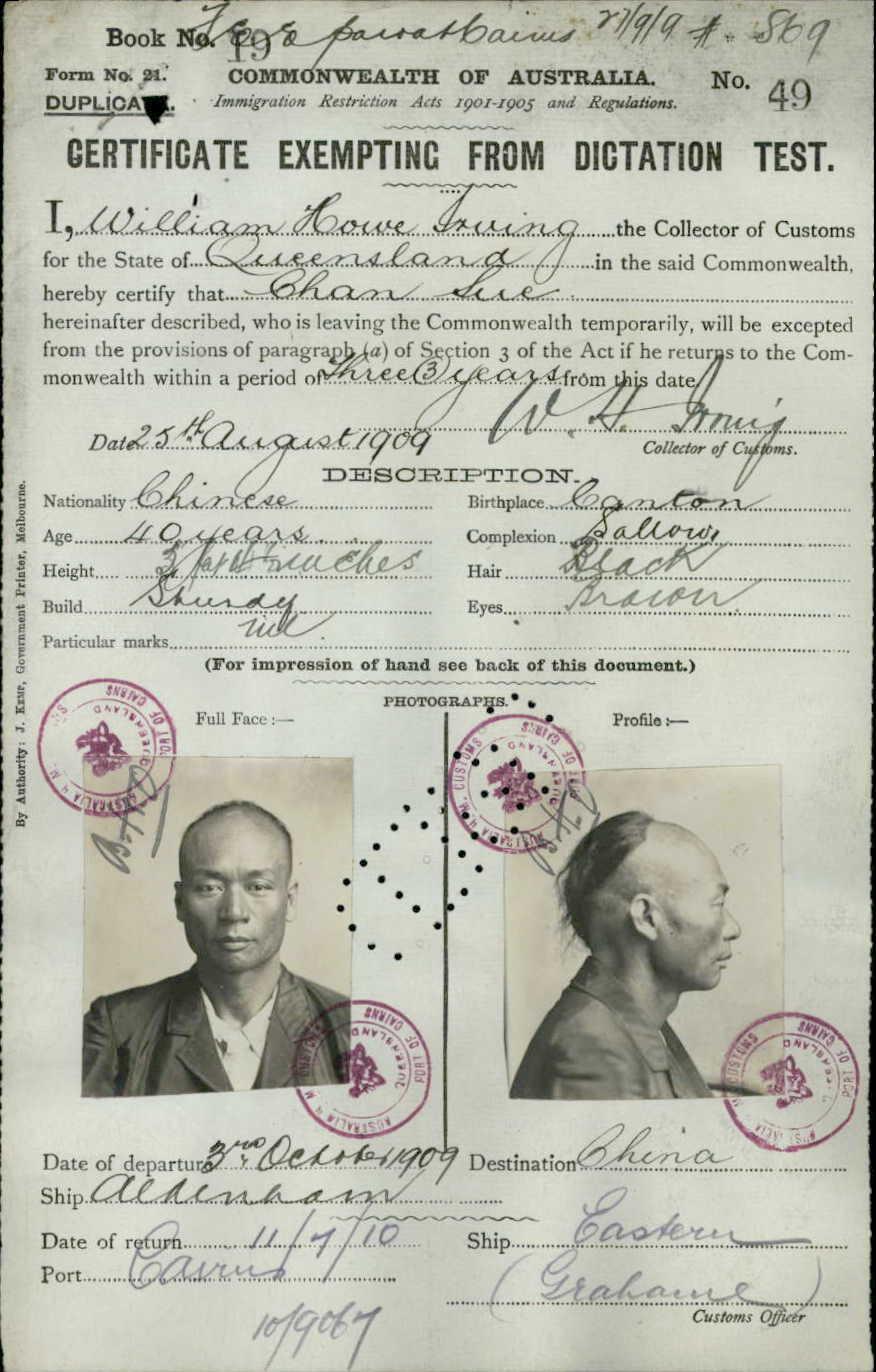 Book No. 19 Cairns 27/9/9 #. 569
Form No. 21. COMMONWEALTH OF AUSTRALIA. No. 49
DUPLICATE. Immigration Restriction Acts 1901-1905 and Regulations.
CERTIFICATE EXEMPTING FROM DICTATION TEST.
I, William Howe Irving the Collector of Customs
for the State of Queensland in the said Commonwealth,
hereby certify that Chan Sue
hereinafter described, who is leaving the Commonwealth temporarily, will be excepted
from the provisions of paragraph (a) of Section 3 of the Act if he returns to the Com-
monwealth within a period of Three (3) years from this date
W. H. Irving
Date 25th August 1909 Collector of Customs.
DESCRIPTION.
Nationality Chinese Birthplace Canton
Age 40 years Complexion Sallow
Height inches Hair Black
Build Sturdy Eyes Brown
Particular marks nil
(For impression of hand see back of this document.)
PHOTOGRAPHS.
Full Face :— Profile :—
H. M. CUSTOMS PORT OF CAIRNS QUEENSLAND AUSTRALIA
H. M. CUSTOMS PORT OF CAIRNS QUEENSLAND AUSTRALIA
H. M. CUSTOMS PORT OF CAIRNS QUEENSLAND AUSTRALIA
H. M. CUSTOMS PORT OF CAIRNS QUEENSLAND AUSTRALIA
Date of departure 3rd October 1909 Destination China
Ship Aldenham
Date of return 11/7/10 Ship Eastern
Port Cairns (Grahame)
Customs Officer
10/9067
By Authority: J. KEMP, Government Printer, Melbourne.